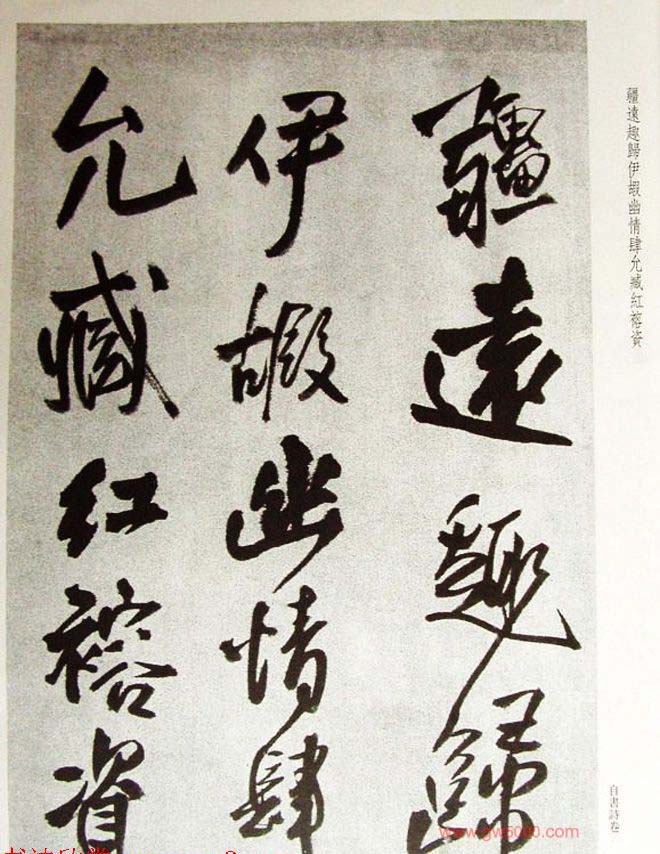 疆遠趣歸伊嘏幽情肆允臧紅榕資
疆遠趣歸
伊嘏幽情肆
允臧紅榕資
自書詩卷
www.gw5000.com